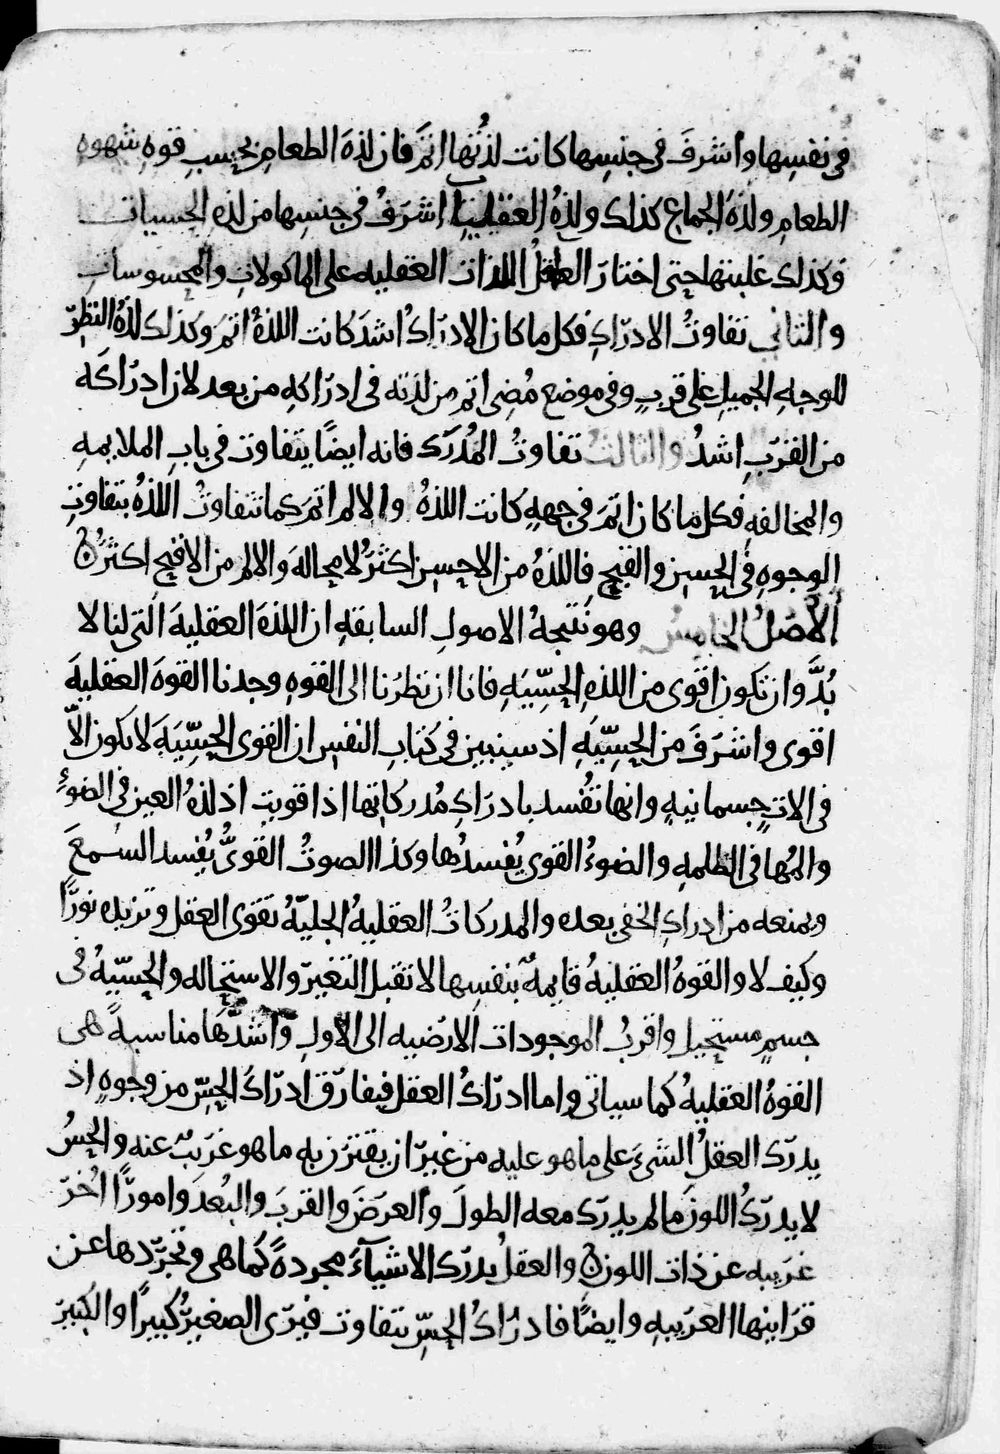 فى نفسها واشرف فى جنسها كانت لذتها اتم فان لذة الطعام بحسب قوه شهوه
الطعام ولذة الجماع كذلك ولذة العقليات اشرف فى جنسها من لذه الحسيات
وكذلك غلبتها حتى اختار العاقل اللذات العقليه على الماكولات والمحسوسات
والثانى تفاوت الادراك فكل ما كان الادراك اشد كانت اللذة اتم وكذلك لذة النظر
للوجه الجميل على قرب وفى موضع مضى اتم من لذته فى ادراكه من بعد لان ادراكه
من القرب اشد والثالث تفاوت المدرك فانه ايضًا يتفاوت فى باب الملايمه
والمخالفه فكل ما كان اتم فى جهه كانت اللذة والالم اتم كما تتفاوت اللذة بتفاوت
الوجوه فى الحسن والقبح فاللذة من الاحسن اكثر لا محالة والالم من الاقبح اكثر
الاصل الخامس وهو نتيجة الاصول السابقه ان اللذة العقلية التى لنا لا
بدَّ وان تكون اقوى من اللذه الحسّيه فانا ان نظرنا الى القوه وجدنا القوة العقلية
اقوى واشرف من الحسّيه اذ سيبين فى كتاب النفس ان القوى الحسّية لا يكون الّا
فى الات جسمانيه وانها تفسد بادراك مدركاتها اذا قويت اذ لذة العين فى الضوء
والمها فى الظلمه والضوء القوى يفسدها وكذا الصوت القوىّ يفسد السمع
ويمنعه من ادراك الخفى بعده والمدركات العقلية الجليّة تقوى العقل وتزيده نورًا
وكيف لا والقوة العقلية قايمة بنفسها لا تقبل التغير والاستحاله والحسّية فى
جسم مستحيل واقرب الموجودات الارضيه الى الاول واشدّها مناسبةً هى
القوة العقلية كما سياتى واما ادراك العقل فيفارق ادراك الحسّ من وجوه اذ
يدرك العقل الشىء على ما هو عليه من غير ان يقترن به ما هو غريب عنه والحس
لا يدرك اللون ما لم يدرك معه الطول والعرض والقرب والبعد وامورًا اخر
غريبه عن ذات اللون والعقل يدرك الاشيآء مجردةً كما هى وتجرّدها عن
قراينها الغريبه وايضًا فادراك الحسّ يتفاوت فيرى الصغير كبيرًا والكبير